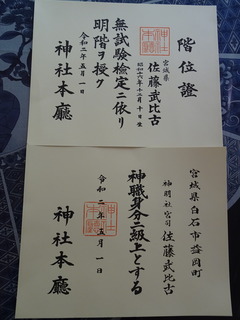 階位證
宮城県
佐藤武比古
昭和六年十二月十日生
無試験検定ニ依リ
明階ヲ授ク
令和二年五月一日
神社本廳
宮城県白石市益岡町
神明社宮司 佐藤武比古
神職身分二級上とする
令和二年五月一日
神社本廳